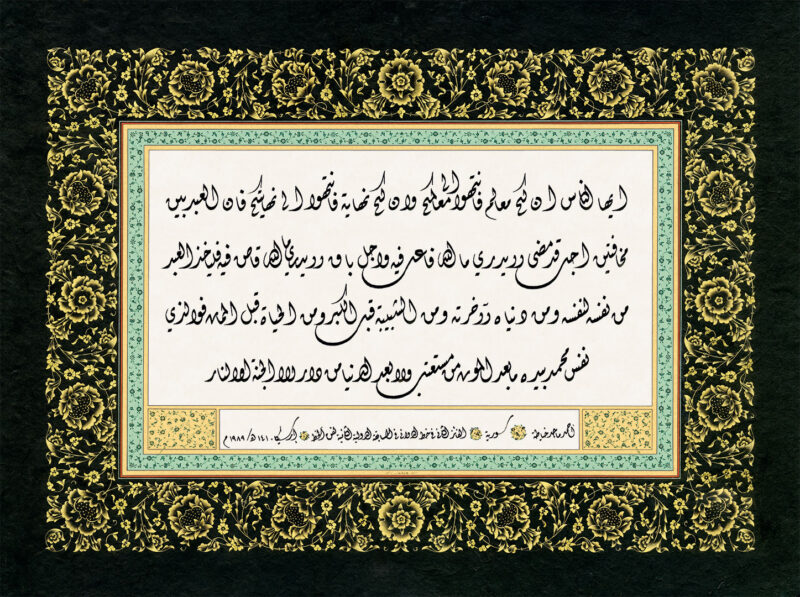 ايها الناس ان لكم معالم فانتهوا الى معالمكم وان لكم نهاية فانتهوا الى نهايتكم فان العبد بين
مخافتين اجل قد مضى ولا يدري ما الله فاعل فيه واجل باق ولا يدري ما الله قاض فيه فليأخذ العبد
من نفسه لنفسه ومن دنياه لآخرته ومن الشبيبة قبل الكبر ومن الحياة قبل الممات فوالذي
نفس محمد بيده ما بعد الموت من مستعتب ولا بعد الدنيا من دار الا الجنة او النار
سورية الفائز في خط في المسابقة الدولية الثانية لفن الخط ارسيكا ١٤١٠هـ/١٩٨٩م